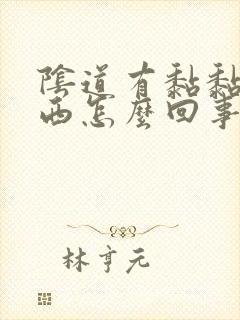 陰道有黏黏
西怎麼回事
林亨元